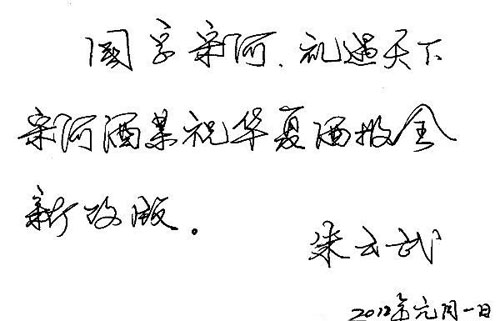 国字宋河、礼遇天下
宋河酒业祝华夏酒报全
新改版。
朱云武
2012年元月一日